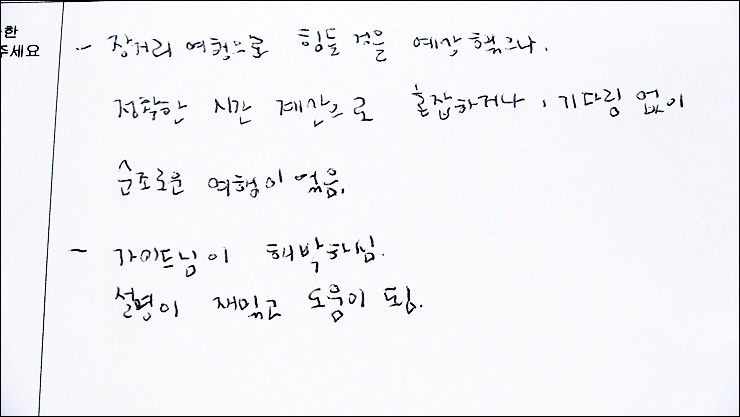 한
주세요
- 장거리 여행으로 힘들 것을 예상했으나,
정확한 시간 계산으로 혼잡하거나, 기다림 없이
순조로운 여행이었음.
- 가이드님이 해박하심.
설명이 재밌고 도움이 됨.